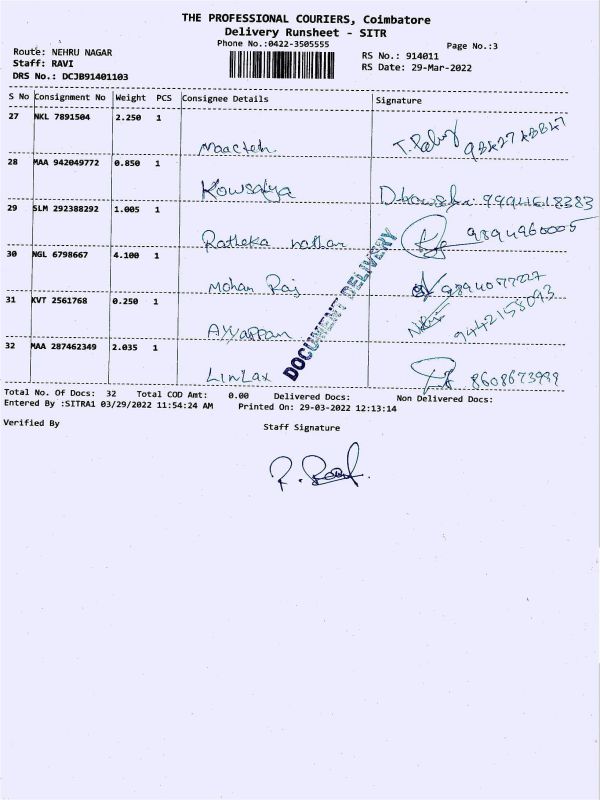 THE PROFESSIONAL COURIERS, Coimbatore
Delivery Runsheet - SITR
Phone No.:0422-3505555
Page No.:3
Route: NEHRU NAGAR
Staff: RAVI
DRS No.: DCJB91401103
RS No.: 914011
RS Date: 29-Mar-2022
S No Consignment No Weight PCS Consignee Details Signature
27 NKL 7891504 2.250 1
28 MAA 942049772 0.850 1
Kowsalya
29 SLM 292388292 1.005 1
9894960005
30 NGL 6798667 4.100 1
Mohan Raj 9894077227
31 KVT 2561768 0.250 1
Ayyappan 9442158093
32 MAA 287462349 2.035 1
LinLax 8608673999
DOCUMENT DELIVERY
Total No. Of Docs: 32 Total COD Amt: 0.00 Delivered Docs: Non Delivered Docs:
Entered By :SITRA1 03/29/2022 11:54:24 AM Printed On: 29-03-2022 12:13:14
Verified By Staff Signature